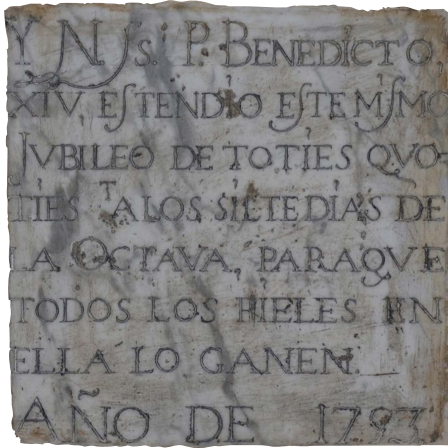 Y N. S. P. BENEDICTO,
XIV, ESTENDIO ESTE MISMO
JVBILEO DE TOTIES QVO-
TIES A LOS SIETE DIAS DE
LA OCTAVA, PARA QVE
TODOS LOS FIELES EN
ELLA LO GANEN.
AÑO DE 1793